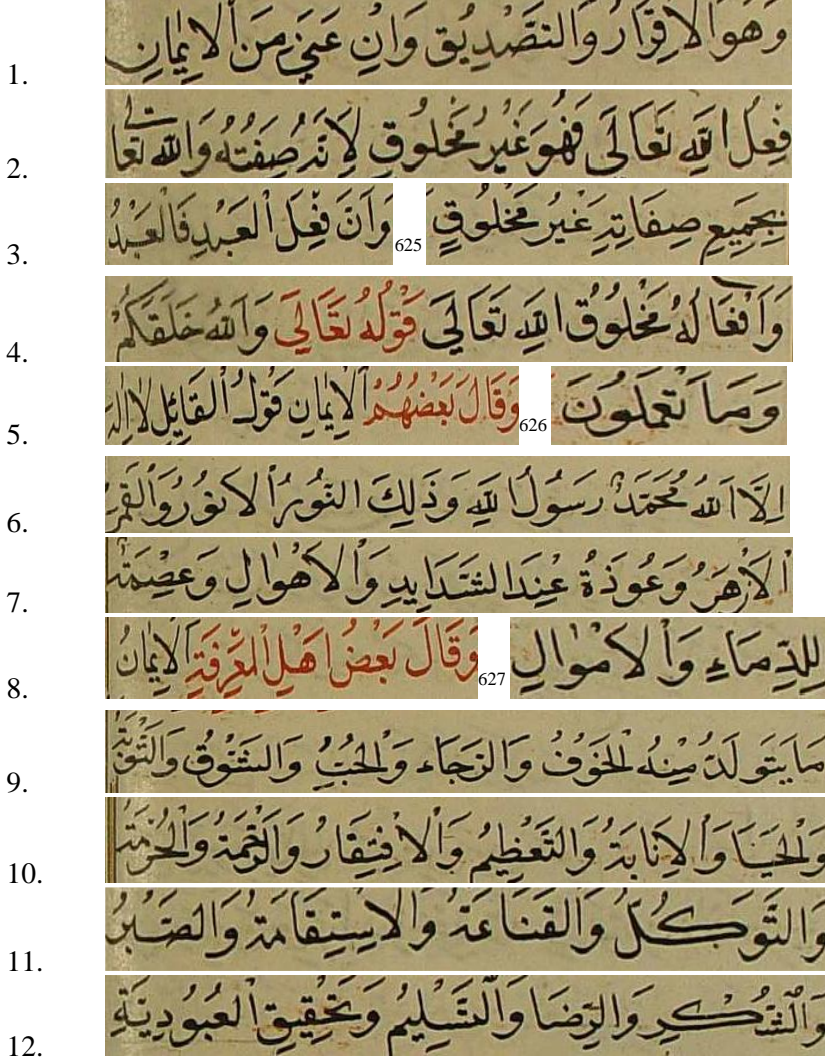 1. وَهُوَ الْاِقْرَارُ وَالتَّصْدِيقُ وَاِنْ عَنَى مِنَ الْاِيْمَانِ
2. فِعْلَ اللّٰهِ تَعَالَى فَهُوَ غَيْرُ مَخْلُوقٍ لِاَنَّهُ صِفَتُهُ وَاللّٰهُ تَعَالَى
3. بِجَمِيعِ صِفَاتِهِ غَيْرُ مَخْلُوقٍ 625 وَاَنَّ فِعْلَ الْعَبْدِ فَالْعَبْدُ
4. وَاَفْعَالُهُ مَخْلُوقُ اللّٰهِ تَعَالَى قَوْلُهُ تَعَالَى وَاللّٰهُ خَلَقَكُمْ
5. وَمَا تَعْمَلُونَ 626 وَقَالَ بَعْضُهُمُ الْاِيْمَانِ قَوْلُ الْقَائِلِ لَا اِلٰهَ
6. اِلَّا اللّٰهُ مُحَمَّدٌ رَسُولُ اللّٰهِ وَذٰلِكَ النُّورُ الْاَنْوَرُ وَالْقَمَرُ
7. الْاَزْهَرُ وَعُوذَةٌ عِنْدَ الشَّدَايِدِ وَالْاَهْوَالِ وَعِصْمَةٌ
8. لِلدِّمَاءِ وَالْاَمْوَالِ 627 وَقَالَ بَعْضُ اَهْلِ الْمَعْرِفَةِ الْاِيْمَانُ
9. مَا يَتَوَلَّدُ مِنْهُ الْخَوْفُ وَالرَّجَاءُ وَالْحُبُّ وَالشَّوْقُ وَالتَّوْبَةُ
10. وَالْحَيَا وَالْاِنَابَةُ وَالتَّعْظِيمُ وَالْاِفْتِقَارُ وَالرَّحْمَةُ وَالْحُرْمَةُ
11. وَالتَّوَكُّلُ وَالْقَنَاعَةُ وَالْاِسْتِقَامَةُ وَالصَّبْرُ
12. وَالشُّكْرِ وَالرِّضَا وَالتَّسْلِيمُ وَتَحْقِيقِ الْعُبُودِيَّةِ